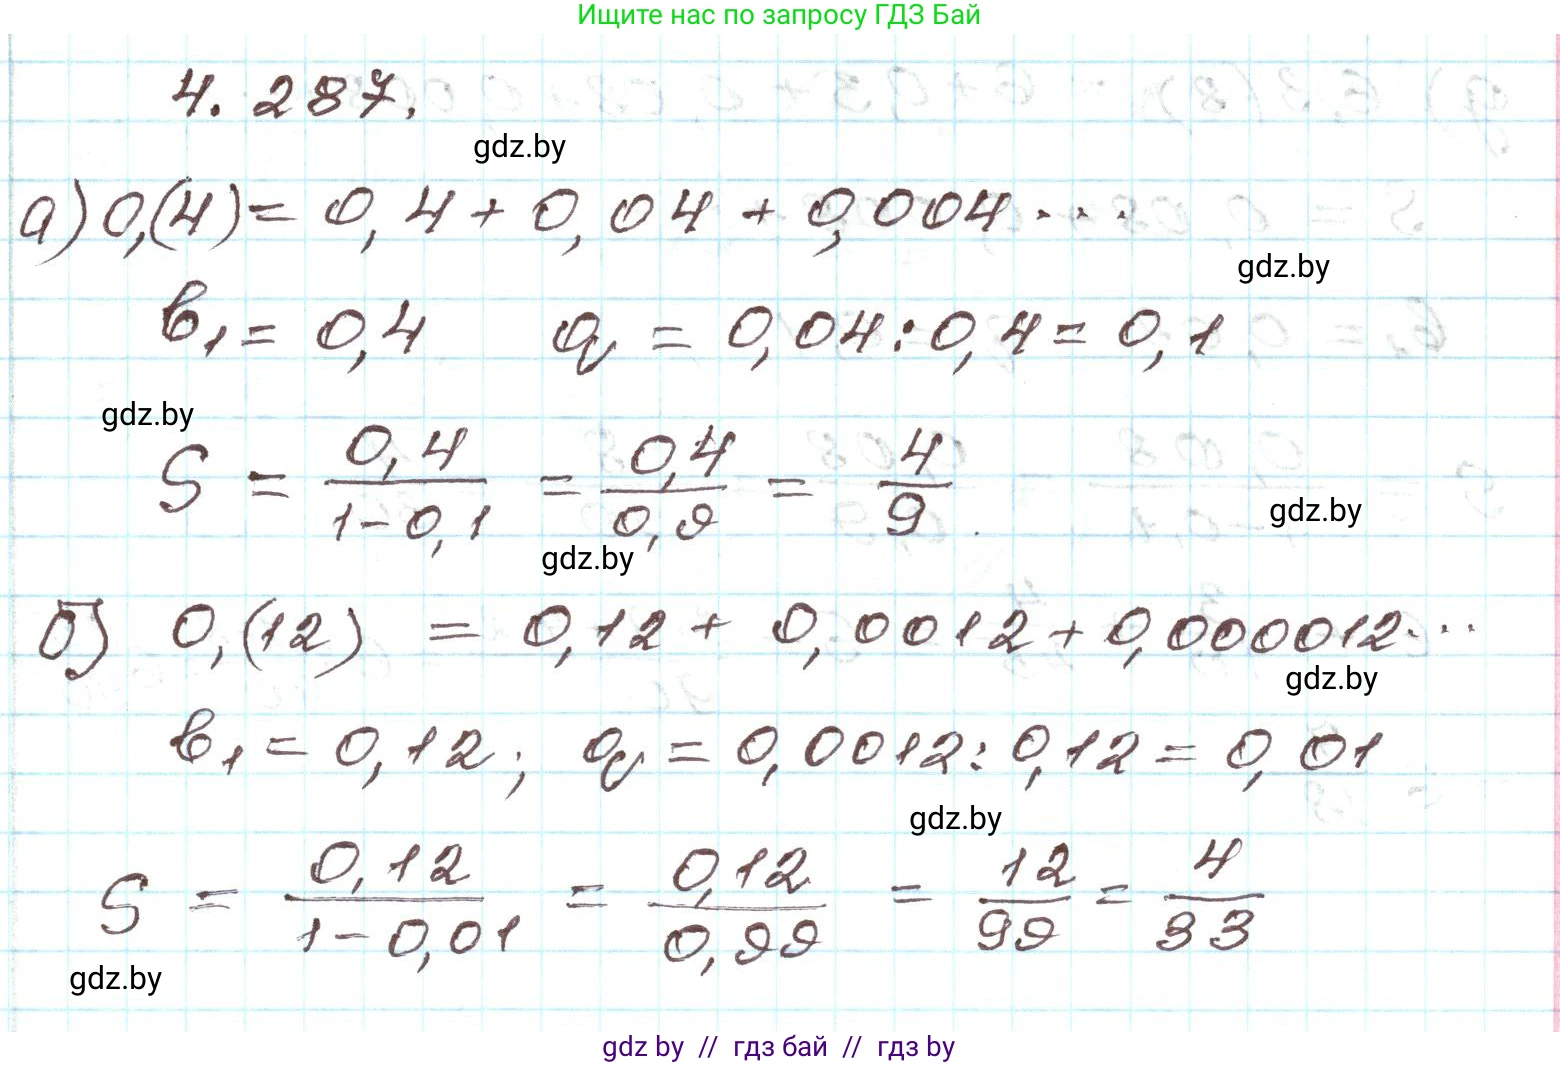 Ищите нас по запросу ГДЗ Бай
4.287.
gdz.by
а) 0,(4) = 0,4 + 0,04 + 0,004...
gdz.by
b₁ = 0,4 q = 0,04 : 0,4 = 0,1
gdz.by
S = 0,4/(1-0,1) = 0,4/0,9 = 4/9
gdz.by
gdz.by
б) 0,(12) = 0,12 + 0,0012 + 0,000012...
gdz.by
b₁ = 0,12; q = 0,0012 : 0,12 = 0,01
gdz.by
S = 0,12/(1-0,01) = 0,12/0,99 = 12/99 = 4/33
gdz.by
gdz by // гдз бай // гдз by